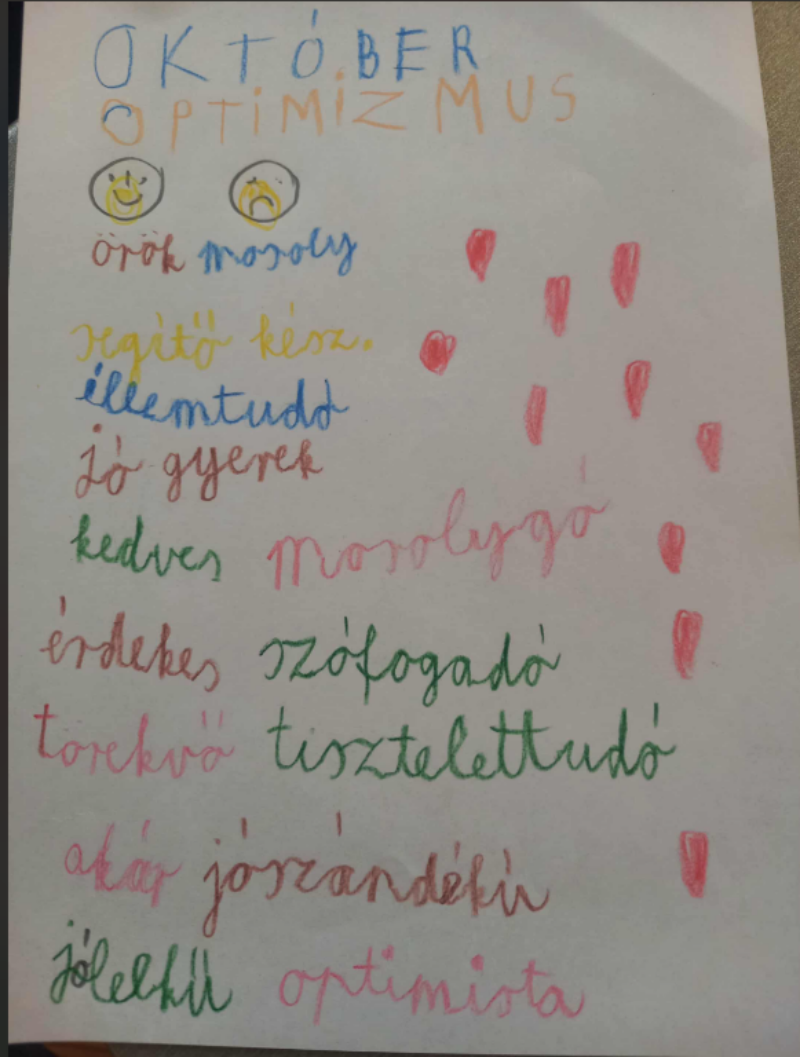 OKTÓBER
OPTIMIZMUS
örök mosoly
segítő kész.
illemtudó
jó gyerek
kedves mosolygó
érdekes szófogadó
torekvő tisztelettudó
akár jószándékú
jólelkű optimista